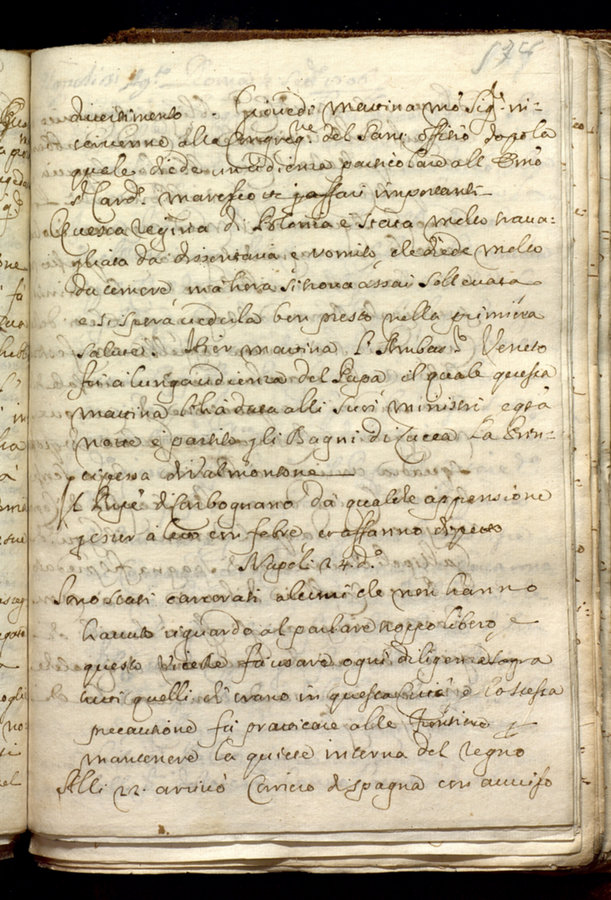 174
divertimento. Giovedi mattina mo: Sig.re in-
tervenne alla Congreg.ne del Sant' offitio dopo la
quale diede un' udienza particolare all Emo
S. Card. Marescotti p affari importanti
Questa Regina di Polonia è stata molto trava-
gliata da dissenteria, e vomito, che diede molto
da temere ma hora si trova assai sollevata
e si spera vederla ben presto nella primiera
salute. Hier mattina l'Ambas.re Veneto
fu a lunga udienza del Papa il quale questa
mattina l'ha data alli suoi ministri e già
notte è partita p li Bagni di Lucca la Prin-
cipessa di Valmontone
Il Prnpe di Carbognano dà qualche apprensione
p esser a letto con febre et affanno di petto
Napoli 24 d.o
Sono stati carcerati alcuni che non hanno
havuto riguardo al parlare troppo libero, e
questo Vicerè fa usare ogni diligenza sopra
tutti quelli ch' erano in questa Città e la stessa
precautione fa praticare alle frontiere p
mantenere la quiete interna del regno
Alli 22 arrivò Corriero di Spagna con avviso